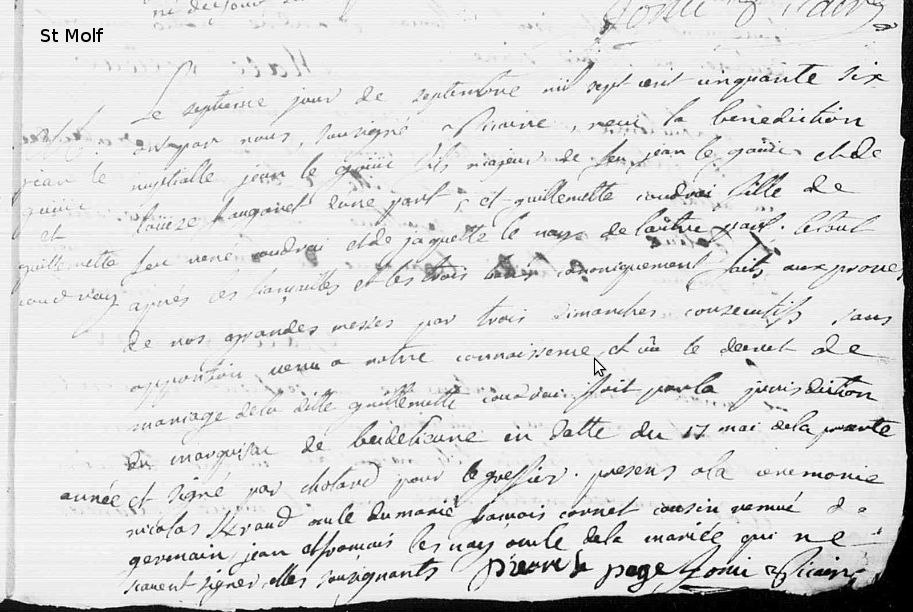 St Molf
Le septieme jour de septembre mil sept cent cinquante six
ont par nous, soussigné Vicaire, receu la benediction
nuptialle jean le guiüi fils majeur de feu jean le guiüi et de
Loüize d'une part, et guillemette coudrai fille de
feu rené coudrai et de jaquette le nay de l'autre part. le tout
apres les fiançailles et les trois bans canoniquement faits aux prones
de nos grandes messes par trois dimanches consecutifs sans
opposition venu a notre connoissence et vû le decret de
mariage de la ditte guillemette coudrai fait par la jurisdiction
du marquisat de en datte du 17 mai de la presente
année et signé par cholard pour le greffier. presens a la ceremonie
nicolas oncle du marié françois cornet cousin remué de
germain, jean et francois les nay oncle de la mariée qui ne
scavent signer les soussignants Pierre le page Vicaire
jean le
guiüi
et
guillemette
coudray